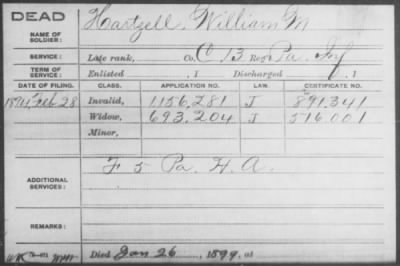 DEAD
NAME OF SOLDIER: Hartzell, William M
SERVICE: Late rank, Co. C 13 Reg't Pa. Inf
TERM OF SERVICE: Enlisted , 1 Discharged , 1
DATE OF FILING. CLASS. APPLICATION NO. LAW. CERTIFICATE NO.
Feb 28 Invalid, 1156,281 J 891,341
Widow, 693,204 J 516,001
Minor,
ADDITIONAL SERVICES: F 5 Pa. H. A.
REMARKS:
Died Jan 26, 1899, at